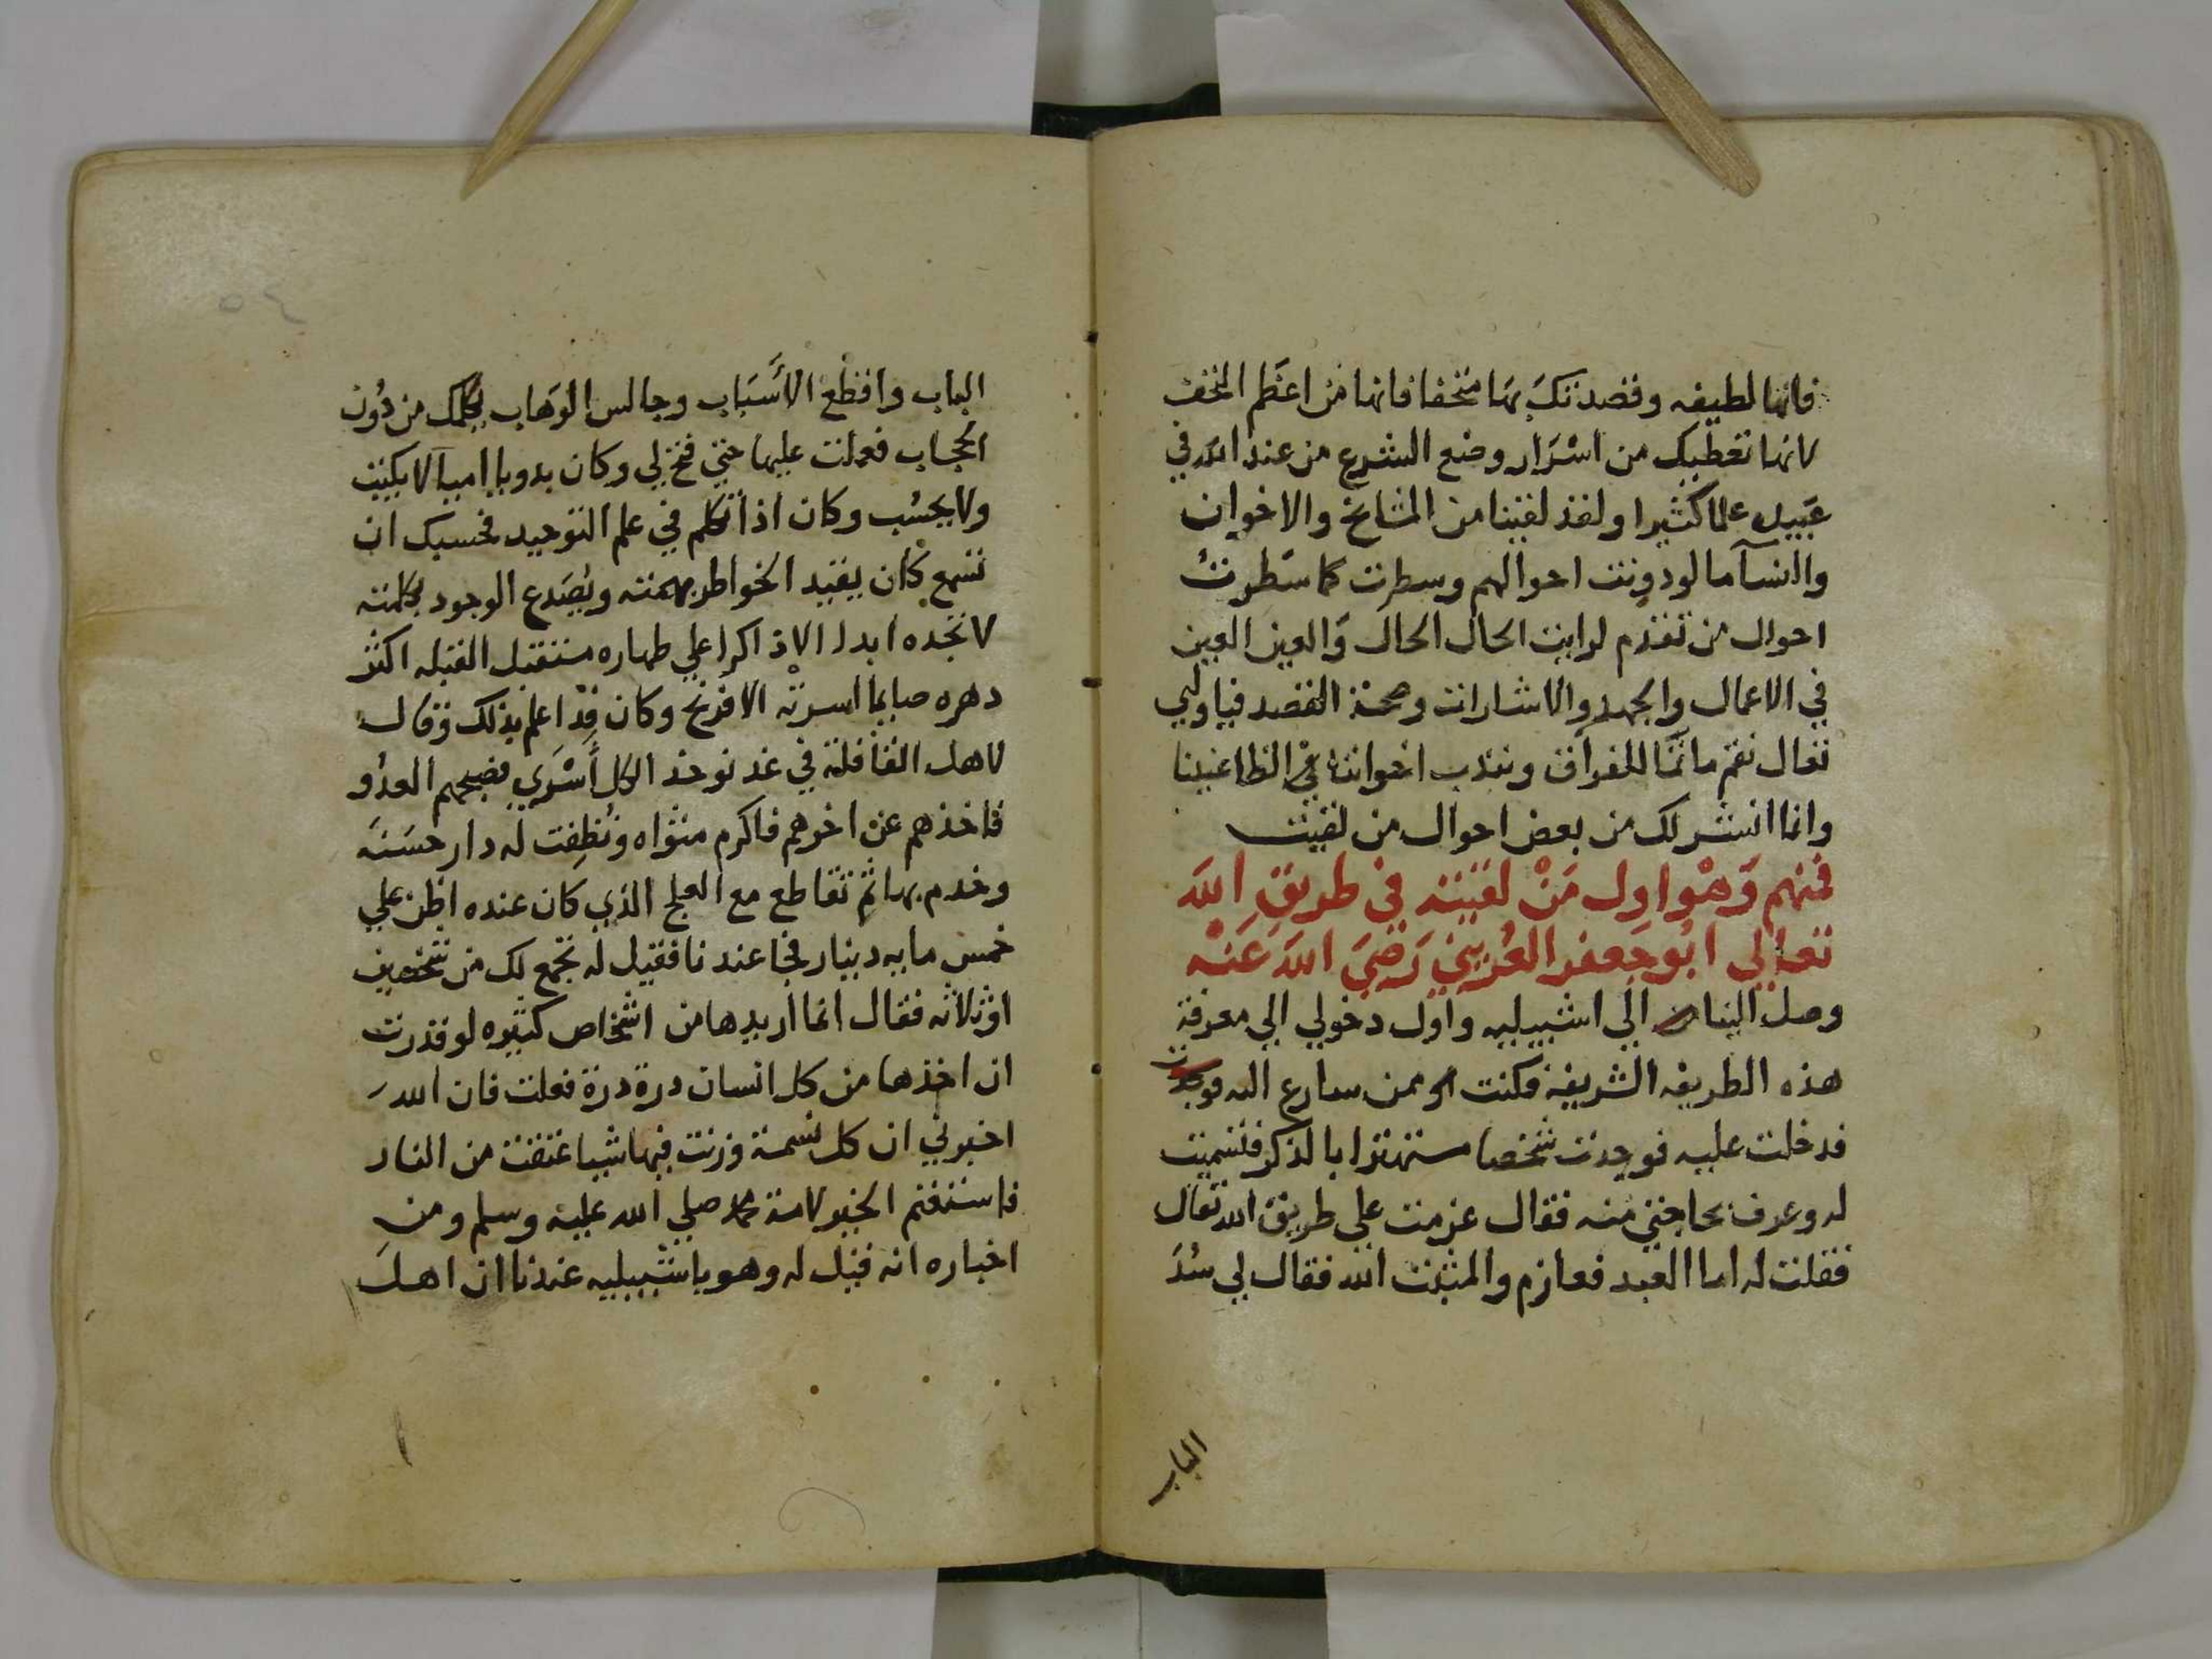 فانها لطيفه وقصدتك بها متحفا فانها من اعظم التحف
لانها تعطيك من اسرار وضع الشرع من عند الله في
عبيده علما كثيرا ولقد لقينا من المشايخ والاخوان
والنسآ ما لو دونت احوالهم وسطرت كما سطرت
احوال من تقدم لرايت الحال الحال والعين العين
في الاعمال والجهد والاشارات وصحة القصد فيا وليي
تعال نقم ماتما للفراق ونندب اخواننا في الظاعنينا
وانما انشر لك من بعض احوال من لقيت
فمنهم وهو اول من لقيته في طريق الله
تعالي ابو جعفر العريني رضي الله عنه
وصل الينا الي اشبيليه واول دخولي الي معرفة
هذه الطريقه الشريفة فكنت ممن سارع اليه
فدخلت عليه فوجدت شخصا مستهترا بالذكر فتسميت
له وعرف بحاجتي منه فقال عزمت علي طريق الله تعال
فقلت له اما العبد فعازم والمثبت الله فقال لي سُدَ
الباب
الباب واقطع الاسباب وجالس الوهاب يكلمك من دون
الحجاب فعملت عليها حتي فتح لي وكان بدويا اميا لا يكتب
ولا يحسب وكان اذا تكلم في علم التوحيد فحسبك ان
تسمع كان يقيد الخواطر بهمته ويصدع الوجود بكلمته
لا تجده ابدا الا ذاكرا علي طهاره مستقبل القبله اكثر
دهره صايما اسرته الافرنج وكان قد اعلم بذلك وقال
لاهل القافلة في غد نوخذ الكل أسري فصبحهم العدو
فاخذهم عن اخرهم فاكرم مثواه ونظفت له دار حسنه
وخدم بها ثم تقاطع مع العلج الذي كان عنده اظن علي
خمس مايه دينار فجا عندنا فقيل له نجمع لك من شخصين
او ثلاثه فقال انما اريدها من اشخاص كثيره لو قدرت
ان اخذها من كل انسان درة درة فعلت فان الله
اخبرني ان كل نسمة وزنت فيها شيا عتقت من النار
فاستغنم الخير لامة محمد صلي الله عليه وسلم ومن
اخباره انه قيل له وهو باشبيليه عندنا ان اهل